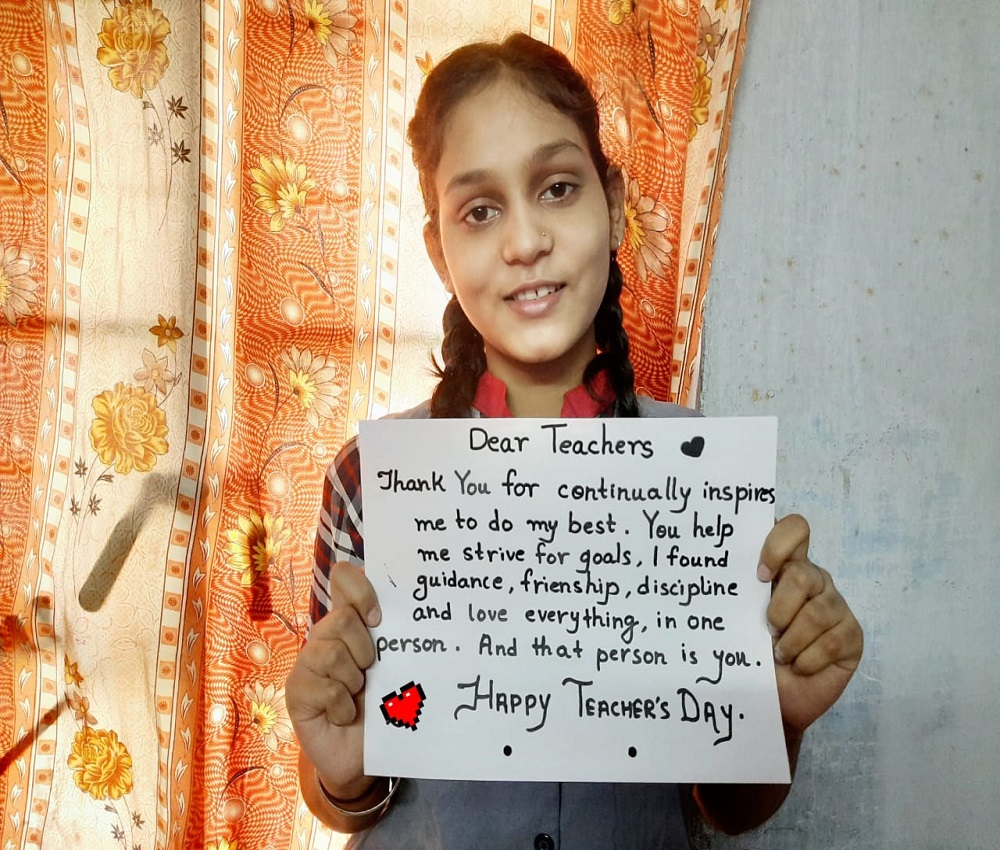 Dear Teachers
Thank You for continually inspires
me to do my best. You help
me strive for goals, I found
guidance, frienship, discipline
and love everything, in one
person. And that person is you.
Happy Teacher's Day.